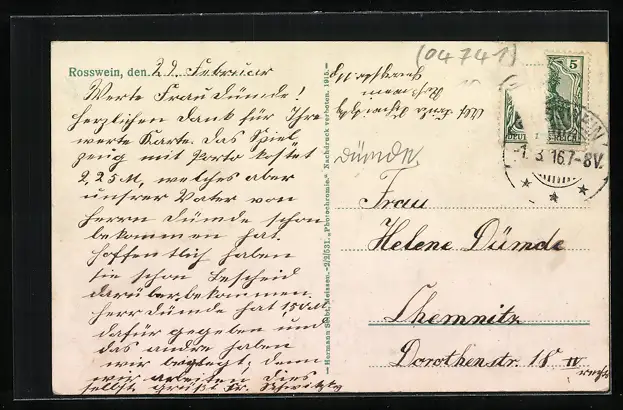 Rosswein, den 29. Februar
Werte Frau Dümde!
Herzlichen Dank für Ihre
werte Karte. Das Spiel
zeug mit Porto kostet
2,25 M, welches aber
unsrer Vater von
Herrn Dümde schon
bekommen hat.
Hoffentlich haben
sie schon Bescheid
darüber bekommen.
Herr Dümde hat
dafür gegeben und
das andere haben
wir beglegt; denn
wir arbeiten dies
selbst. Grüßt Fr.
— Hermann Seibt, Meissen. -2/2/531. „Photochromie." Nachdruck verboten. 1915. —
Abs.
Roßwein
(04741)
5
-1.3.16.7-8V.
Dümde
Frau
Helene Dümde
Chemnitz
Dorothenstr. 18 IV
rechts